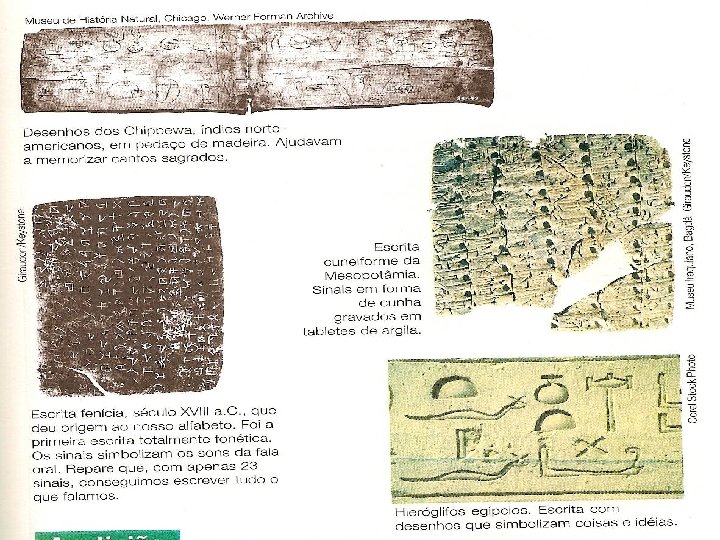 Museu de História Natural, Chicago. Werner Forman Archive
Desenhos dos Chippewa, índios norte-
americanos, em pedaço de madeira. Ajudavam
a memorizar cantos sagrados.
Giraudon/Keystone
Escrita
cuneiforme da
Mesopotâmia.
Sinais em forma
de cunha
gravados em
tabletes de argila.
Museu Iraquiano, Bagdá. Giraudon/Keystone
Escrita fenícia, século XVIII a.C., que
deu origem ao nosso alfabeto. Foi a
primeira escrita totalmente fonética.
Os sinais simbolizam os sons da fala
oral. Repare que, com apenas 23
sinais, conseguimos escrever tudo o
que falamos.
Corel Stock Photo
Hieróglifos egípcios. Escrita com
desenhos que simbolizam coisas e idéias.